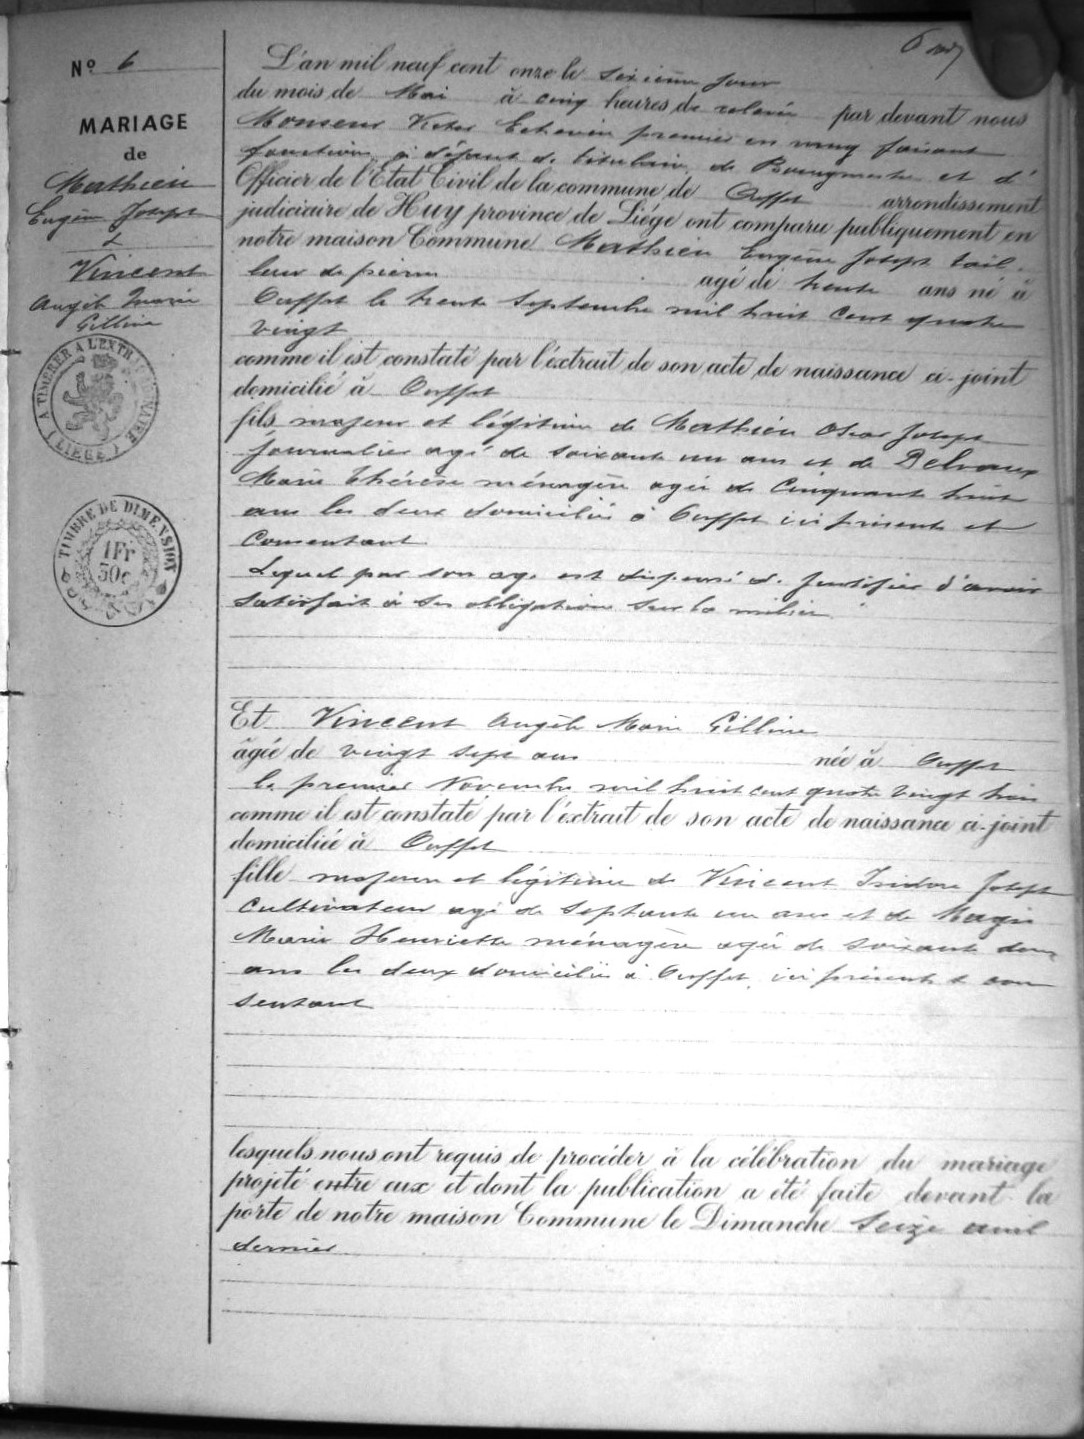 6 mai
Nº 6
MARIAGE
de
Mathieu
Eugène Joseph
&
Vincent
Angèle Marie
Gilline
A TIMBRER A L'EXTRAORDINAIRE
LIEGE
TIMBRE DE DIMENSION
1 Fr
50c
L'an mil neuf cent onze le sixième jour
du mois de Mai à cinq heures de relevée par devant nous
Monseur Victor Echevin premier en rang faisant
fonction, à défaut de titulaire, de Bourgmestre et d'
Officier de l'Etat Civil de la commune de Ouffet arrondissement
judiciaire de Huy province de Liége ont comparu publiquement en
notre maison Commune Mathieu Eugène Joseph tail-
leur de pierres agé de trente ans né à
Ouffet le trente Septembre mil huit cent quatre
vingt
comme il est constaté par l'éxtrait de son acte de naissance ci-joint
domicilié à Ouffet
fils majeur et légitime de Mathieu Oscar Joseph
journalier agé de soixante un ans et de Delvaux
Marie Thérèse ménagère agée de Cinquante huit
ans les deux domiciliés à Ouffet ici présents et
Consentant
Lequel par son age est dispensé de justifier d'avoir
satisfait à ses obligations sur la milice.
Et Vincent Angèle Marie Gilline
âgée de vingt sept ans née à Ouffet
le premier Novembre mil huit cent quatre vingt trois
comme il est constaté par l'éxtrait de son acte de naissance ci-joint
domiciliée à Ouffet
fille majeure et légitime de Vincent Isidore Joseph
Cultivateur agé de septante un ans et de Magis
Marie Henriette ménagère agée de soixante deux
ans les deux domiciliés à Ouffet, ici présents & con
sentant
lesquels nous ont requis de procéder à la célébration du mariage
projeté entre eux et dont la publication a été faite devant la
porte de notre maison Commune le Dimanche Seize avril
dernier